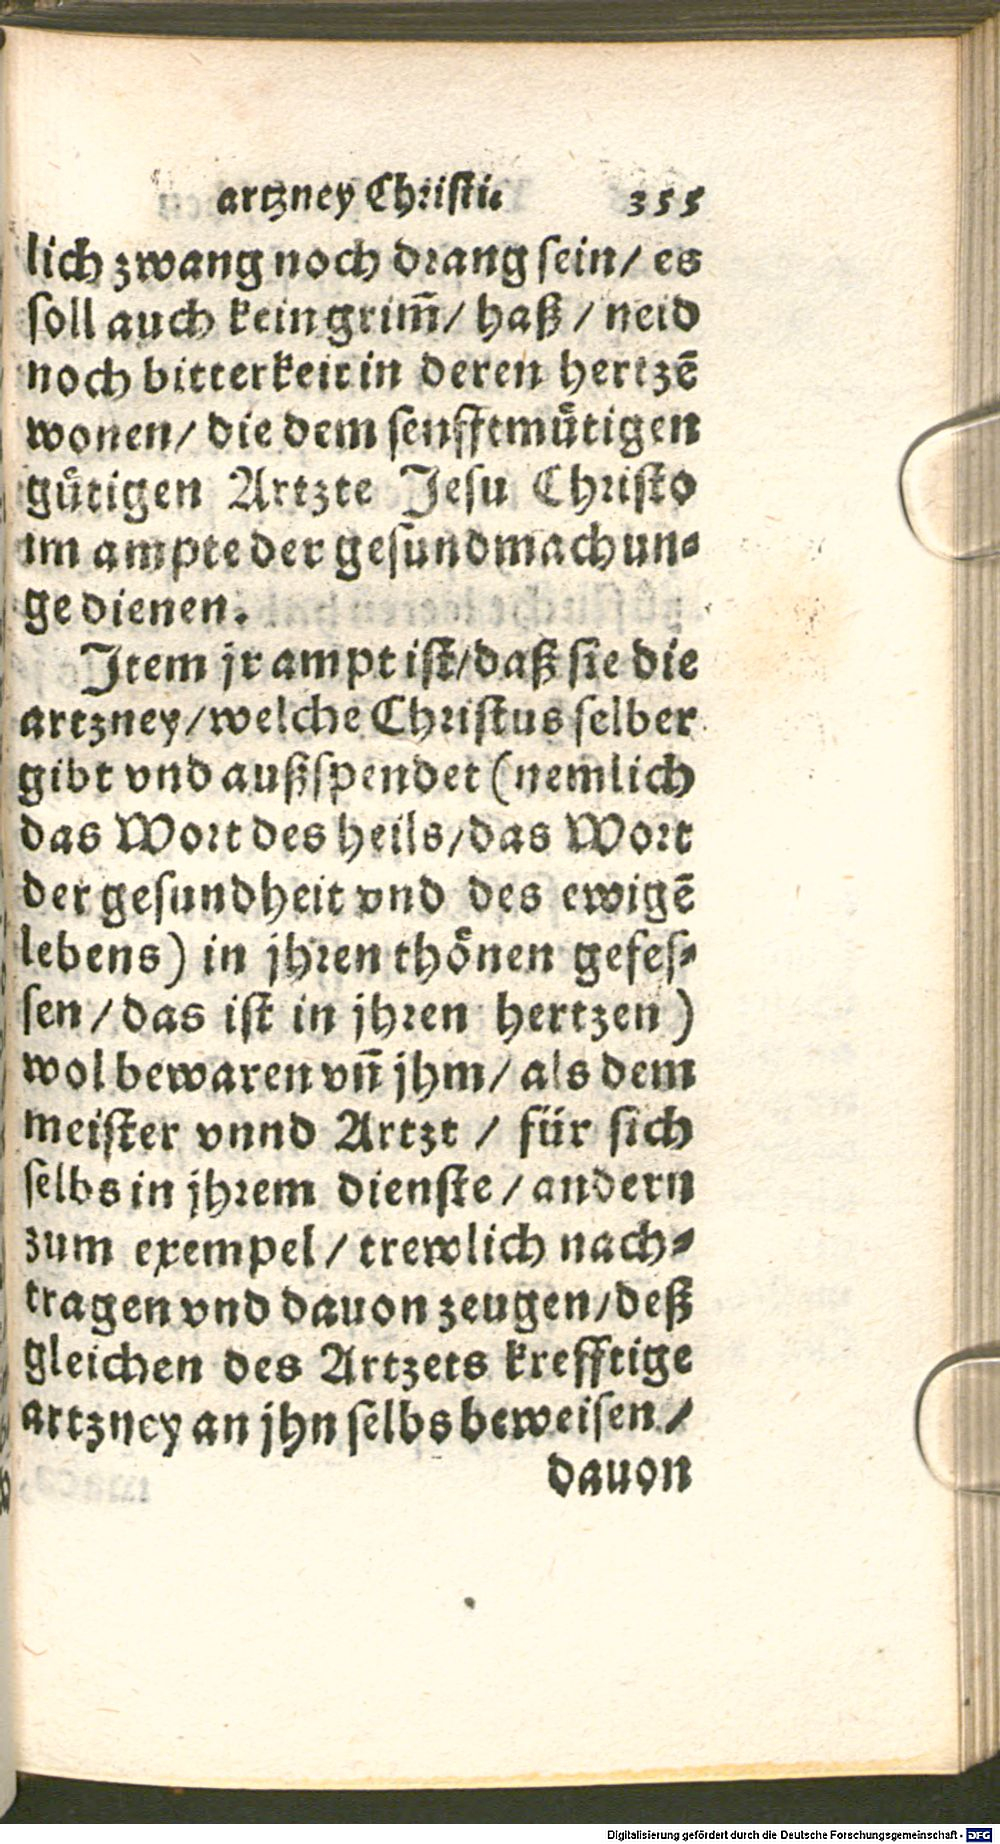 artzney Christi. 355
lich zwang noch drang sein/ es
soll auch kein grim̃/ haß / neid
noch bitterkeit in deren hertzẽ
wonen/ die dem senfftmuͤtigen
guͤtigen Artzte Jesu Christo
im ampte der gesundmachun⸗
ge dienen.
Item jr ampt ist/ daß sie die
artzney/ welche Christus selber
gibt vnd außspendet (nemlich
das Wort des heils/ das Wort
der gesundheit vnd des ewigẽ
lebens) in jhren thoͤnen gefes⸗
sen / das ist in jhren hertzen )
wol bewaren vñ jhm/ als dem
meister vnnd Artzt / für sich
selbs in jhrem dienste / andern
zum exempel / trewlich nach⸗
tragen vnd dauon zeugen/ deß
gleichen des Artzets krefftige
artzney an jhn selbs beweisen /
dauon
Digitalisierung gefördert durch die Deutsche Forschungsgemeinschaft - DFG